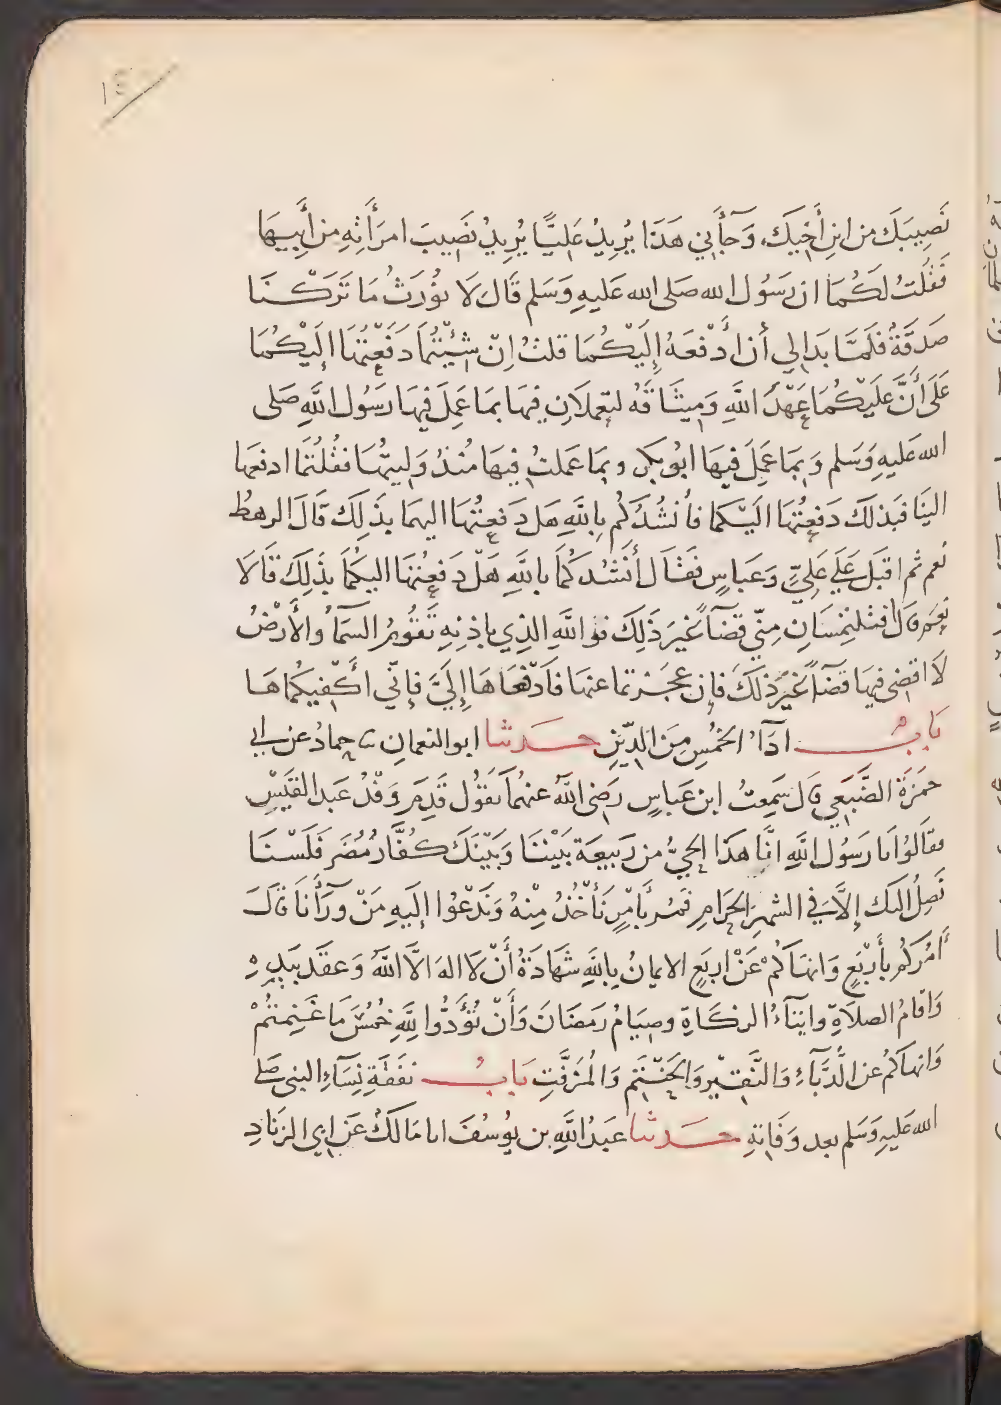 ١٤
نَصِيبَكَ من ابنِ أَخِيكَ، وَجَآءَنِي هَذَا يُرِيدُ عَلِيًّا يُرِيدُ نَصِيبَ امرَأَتِهِ من أَبِيهَا
فَقُلتُ لَكُمَا ان رَسُولَ الله صَلى الله عَليهِ وَسَلم قَالَ لَا نُورَثُ مَا تَرَكْنَا
صَدَقَةٌ فَلَمَّا بَدَا لِي أَن أَدْفَعَهُ إِلَيْكُمَا قلتُ اِنْ شِئْتُمَا دَفَعْتُهَا إِلَيْكُمَا
عَلَى أَنَّ عَلَيْكُمَا عَهْدَ اللَّهِ وَمِيثَاقَهُ لتعملَانِ فِيهَا بمَا عَمِلَ فِيهَا رَسُولُ اللَّهِ صَلى
الله عَليهِ وَسَلم وَبِمَا عَمِلَ فِيهَا ابُو بكرٍ وبمَا عَملتُ فِيهَا مُنْذُ وَلِيتُهَا فقُلْتُمَا ادفعهَا
الينَا فَبذلكَ دَفعتُهَا الَيْكما فأنشُدُكُم بِاللَّهِ هَل دَفعتُهَا اليهمَا بذَلِكَ قَالَ الرهطُ
نعم ثم اقبَلَ عَلَى عَلِيٍّ وَعَباسٍ فَقَالَ أَنشُدكُمَا باللَّهِ هَلْ دَفعتُهَا اليكُمَا بذَلِكَ قَالَا
نعَم قَالَ فتَلتمِسَانِ مِنّي قضَآءً غَيرَ ذَلِكَ فوَاللَّهِ الذِي باذنِهِ تَقُومُ السَمَآءُ والأَرْضُ
لَا اقضِى فيهَا قضَآءً غَيرَ ذلكَ فإِن عجَزتمَا عنهَا فَادْفَعَاهَا إِلَيَّ فإِنّي أَكْفِيكُمَاهَا
بَابُ ادَآءُ الخُمُسِ مِنَ الدِّينِ حَدثنا ابو النعمَانِ ثنا حمادٌ عن ابي
حَمزَةَ الضُّبَعِي قال سَمِعتُ ابنَ عَباسٍ رَضِى اللَّهُ عنهُمَا يَقُولُ قَدِمَ وَفْدُ عَبد القَيْسِ
فقَالُوا يَا رَسُول اللَّهِ انَّا هَذَا الحَيُّ من رَبِيعَة بَيْنَنَا وَبَيْنَكَ كُفَّارُ مُضَرَ فَلَسْنَا
نَصِلُ اليكَ إِلَّا في الشهرِ الحَرَامِ فَمُرنَا بأَمْرٍ نَأْخُذُ مِنْهُ وَنَدْعُوا إِلَيهِ مَنْ ورَآءَنَا قَالَ
آمُرُكُم بأَرْبَعٍ وَانهَاكُمْ عَنْ اربَعٍ الايمانُ بِاللَّهِ شَهَادَةُ أَنْ لَا اله الَّا اللَّهُ وَعقَد بيَدِهِ
وَاقَامُ الصلَاةِ وايتَآءُ الزكَاةِ وصِيَامُ رَمَضَانَ وَأَنْ تُؤَدُّوا لِلَّهِ خُمُسَ مَا غَنِمتُمْ
وَانهاكُم عن الدُّبَّآءِ وَالنَّقِيْرِ وَالحَنْتَمِ وَالمُزَفَّتِ بَابُ نفَقَةِ نِسَآءِ النبى صَلى
الله عَليهِ وَسَلم بعد وَفَاتهِ حَدثنا عَبدُ اللَّهِ بن يُوسُفَ انا مَالكٌ عَن ابي الزنَادِ